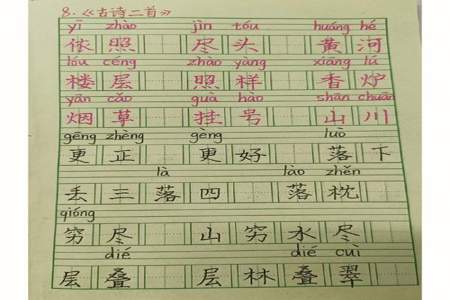 8.《古诗二首》
yī zhào jìn tóu huáng hé
依照 尽头 黄河
lóu céng zhào yàng xiāng lú
楼层 照样 香炉
yān cǎo guà hào shān chuān
烟草 挂号 山川
gēng zhèng gèng luò
更正 更好 落下
là lào zhěn
丢三落四 落枕
qióng
穷尽 山穷水尽
dié dié cuì
层叠 层林叠翠